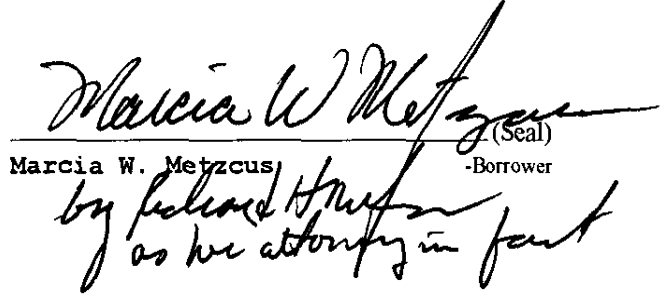 Marcia W Metzcus (Seal)
Marcia W. Metzcus -Borrower
by Richard H Metzcus
as her attorney in fact